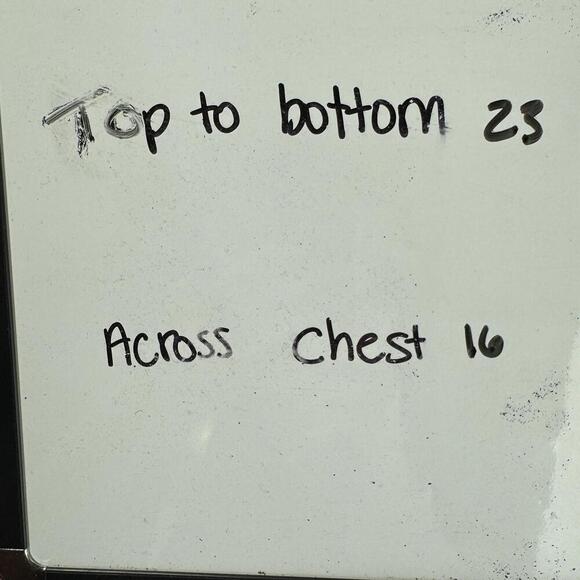 Top to bottom 23
Across Chest 16